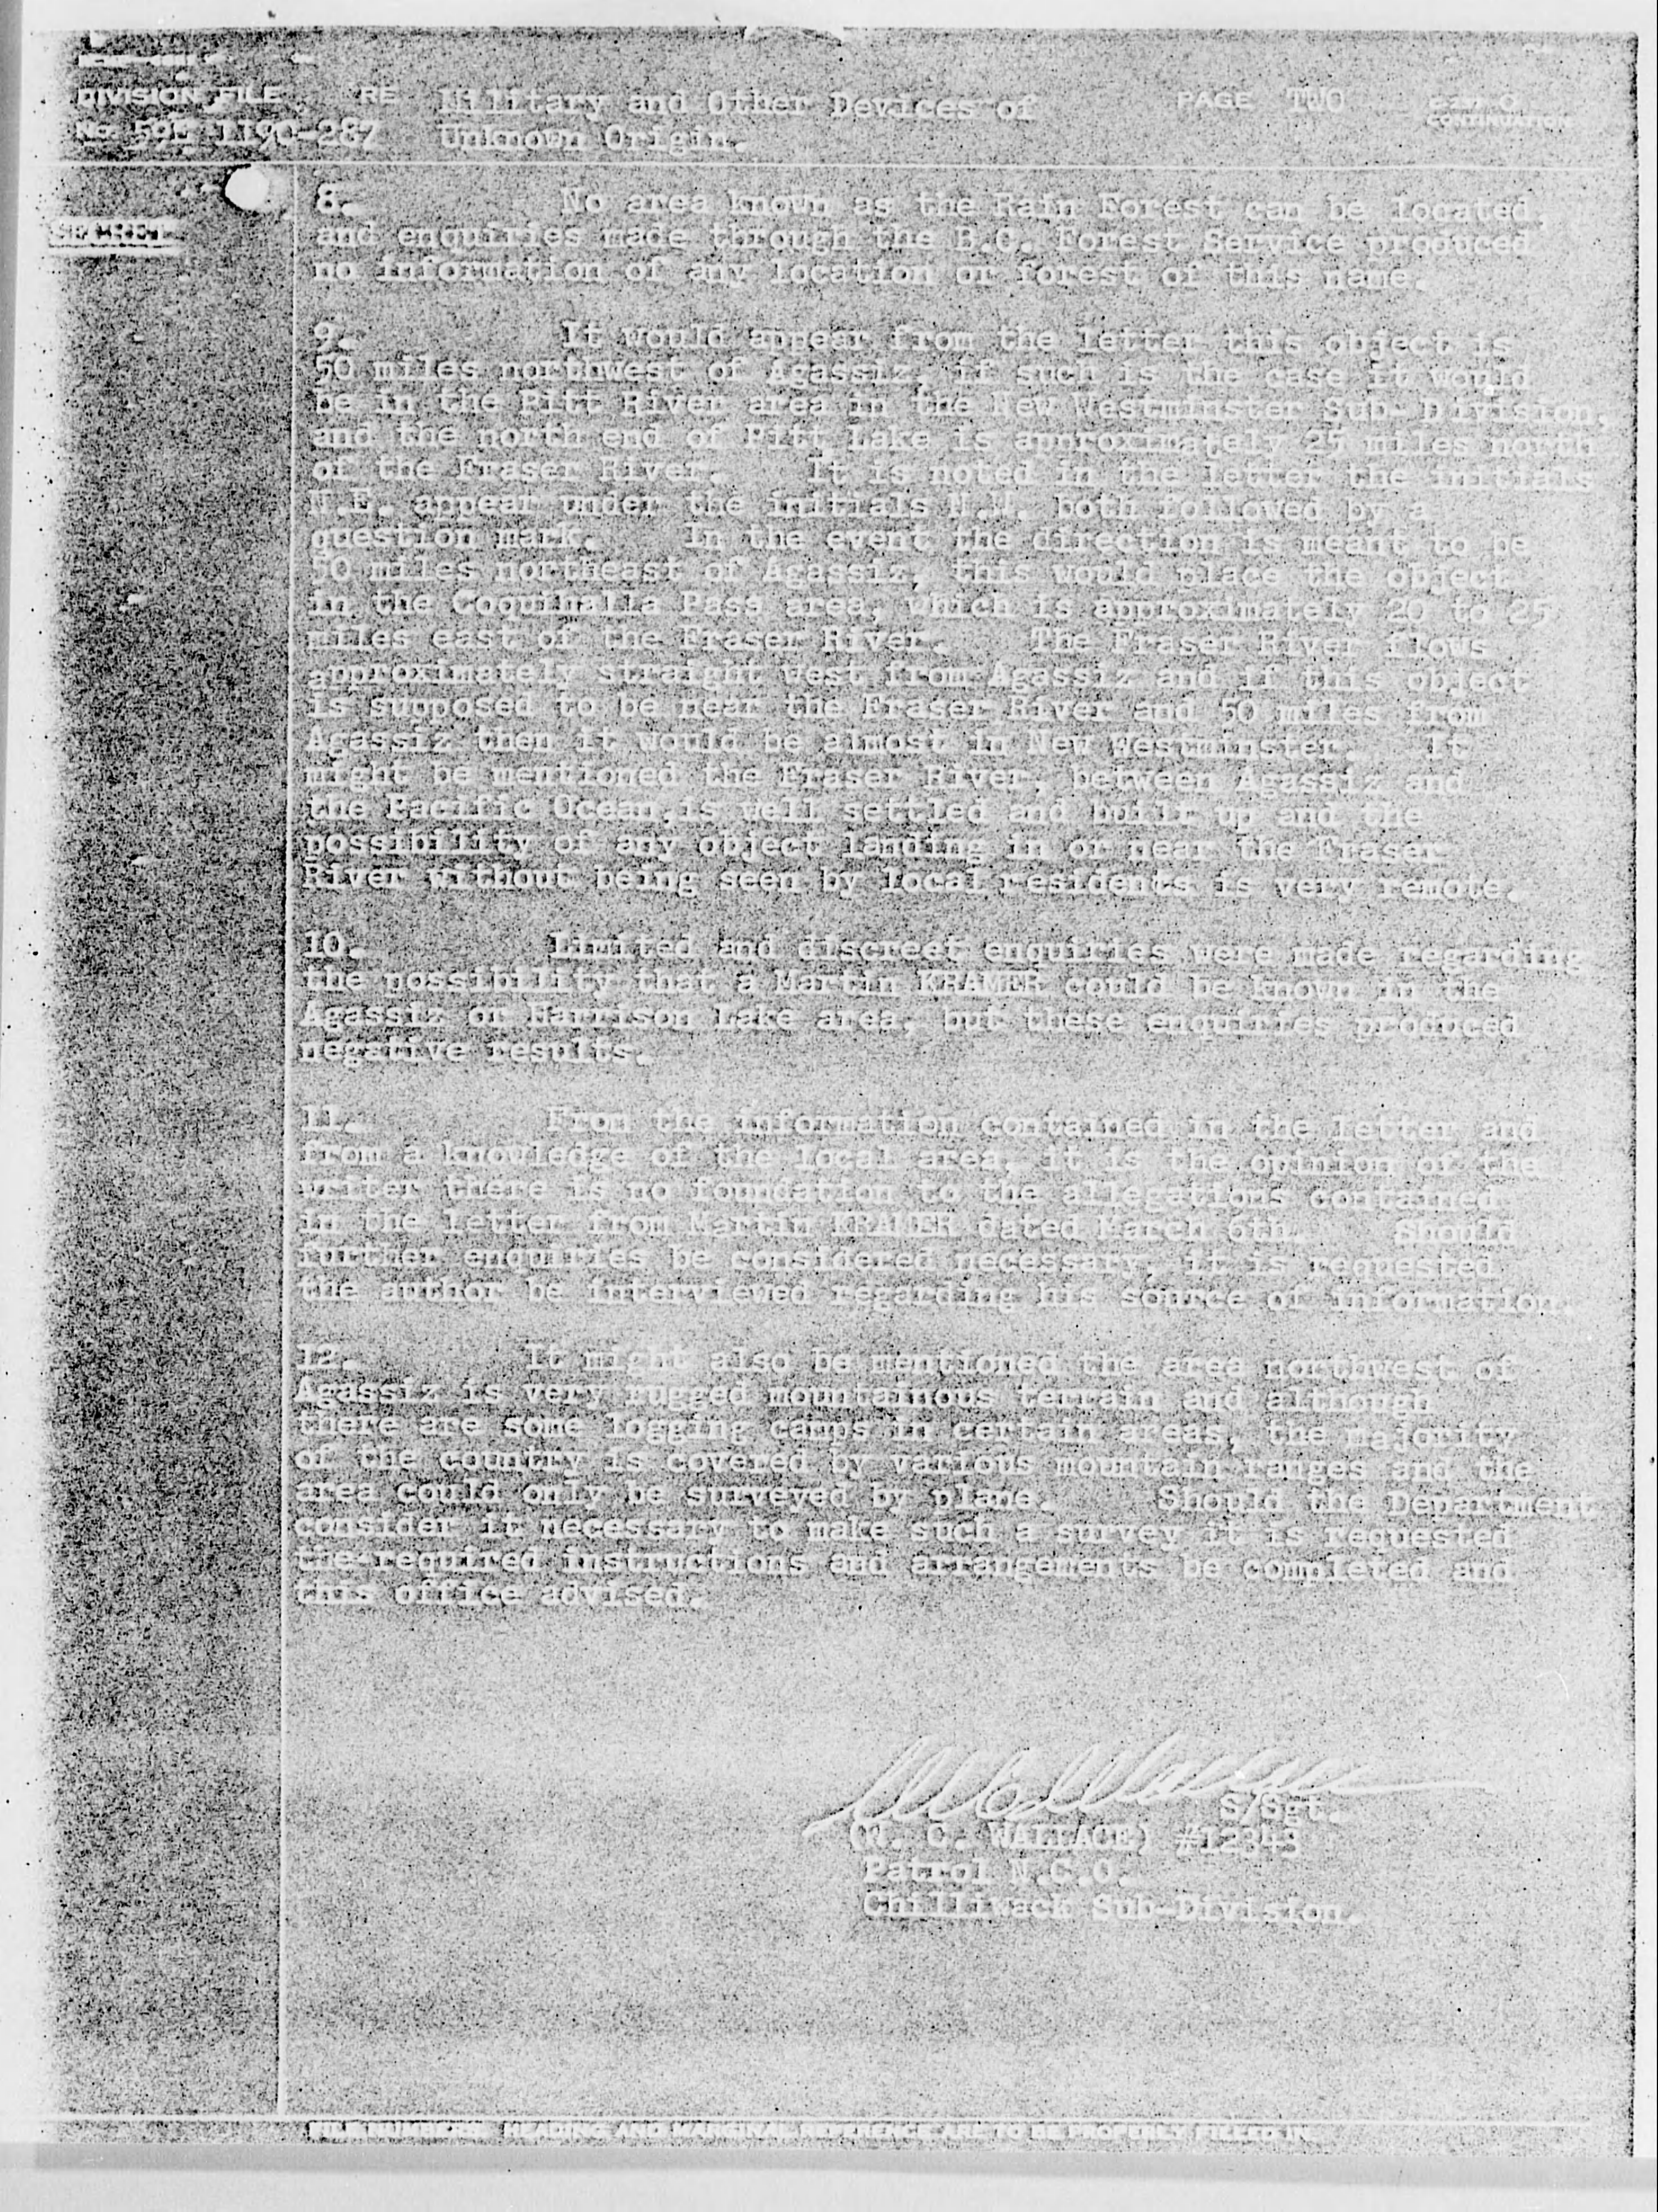 DIVISION FILE RE Military and Other Devices of PAGE TWO
No. 1190-287 Unknown Origin. CONTINUATION
SECRET
8. No area known as the Rain Forest can be located,
and enquiries made through the B.C. Forest Service produced
no information of any location or forest of this name.
9. It would appear from the letter this object is
50 miles northwest of Agassiz, if such is the case it would
be in the Pitt River area in the New Westminster Sub-Division,
and the north end of Pitt Lake is approximately 25 miles north
of the Fraser River. It is noted in the letter the initials
N.E. appear under the initials N.W. both followed by a
question mark. In the event the direction is meant to be
50 miles northeast of Agassiz, this would place the object
in the Coquihalla Pass area, which is approximately 20 to 25
miles east of the Fraser River. The Fraser River flows
approximately straight west from Agassiz and if this object
is supposed to be near the Fraser River and 50 miles from
Agassiz then it would be almost in New Westminster. It
might be mentioned the Fraser River, between Agassiz and
the Pacific Ocean,is well settled and built up and the
possibility of any object landing in or near the Fraser
River without being seen by local residents is very remote.
10. Limited and discreet enquiries were made regarding
the possibility that a Martin KRAMER could be known in the
Agassiz or Harrison Lake area, but these enquiries produced
negative results.
11. From the information contained in the letter and
from a knowledge of the local area, it is the opinion of the
writer there is no foundation to the allegations contained
in the letter from Martin KRAMER dated March 6th. Should
further enquiries be considered necessary, it is requested
the author be interviewed regarding his source of information.
12. It might also be mentioned the area northwest of
Agassiz is very rugged mountainous terrain and although
there are some logging camps in certain areas, the majority
of the country is covered by various mountain ranges and the
area could only be surveyed by plane. Should the Department
consider it necessary to make such a survey it is requested
the required instructions and arrangements be completed and
this office advised.
S/Sgt.
(W. C. WALLACE) #12343
Patrol N.C.O.
Chilliwack Sub-Division.
FILE NUMBERS HEADING AND MARGINAL REFERENCE ARE TO BE PROPERLY FILLED IN